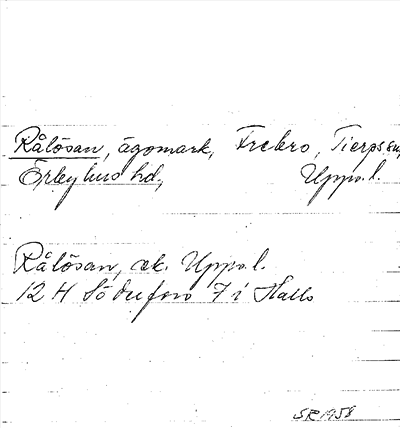 Rålösan, ägomark, Frebro, Tierps sn,
Örbyhus hd, Upps. l.
Rålösan, ek. Upps. l.
12 H Söderfors 7 i Halls
SR 1958